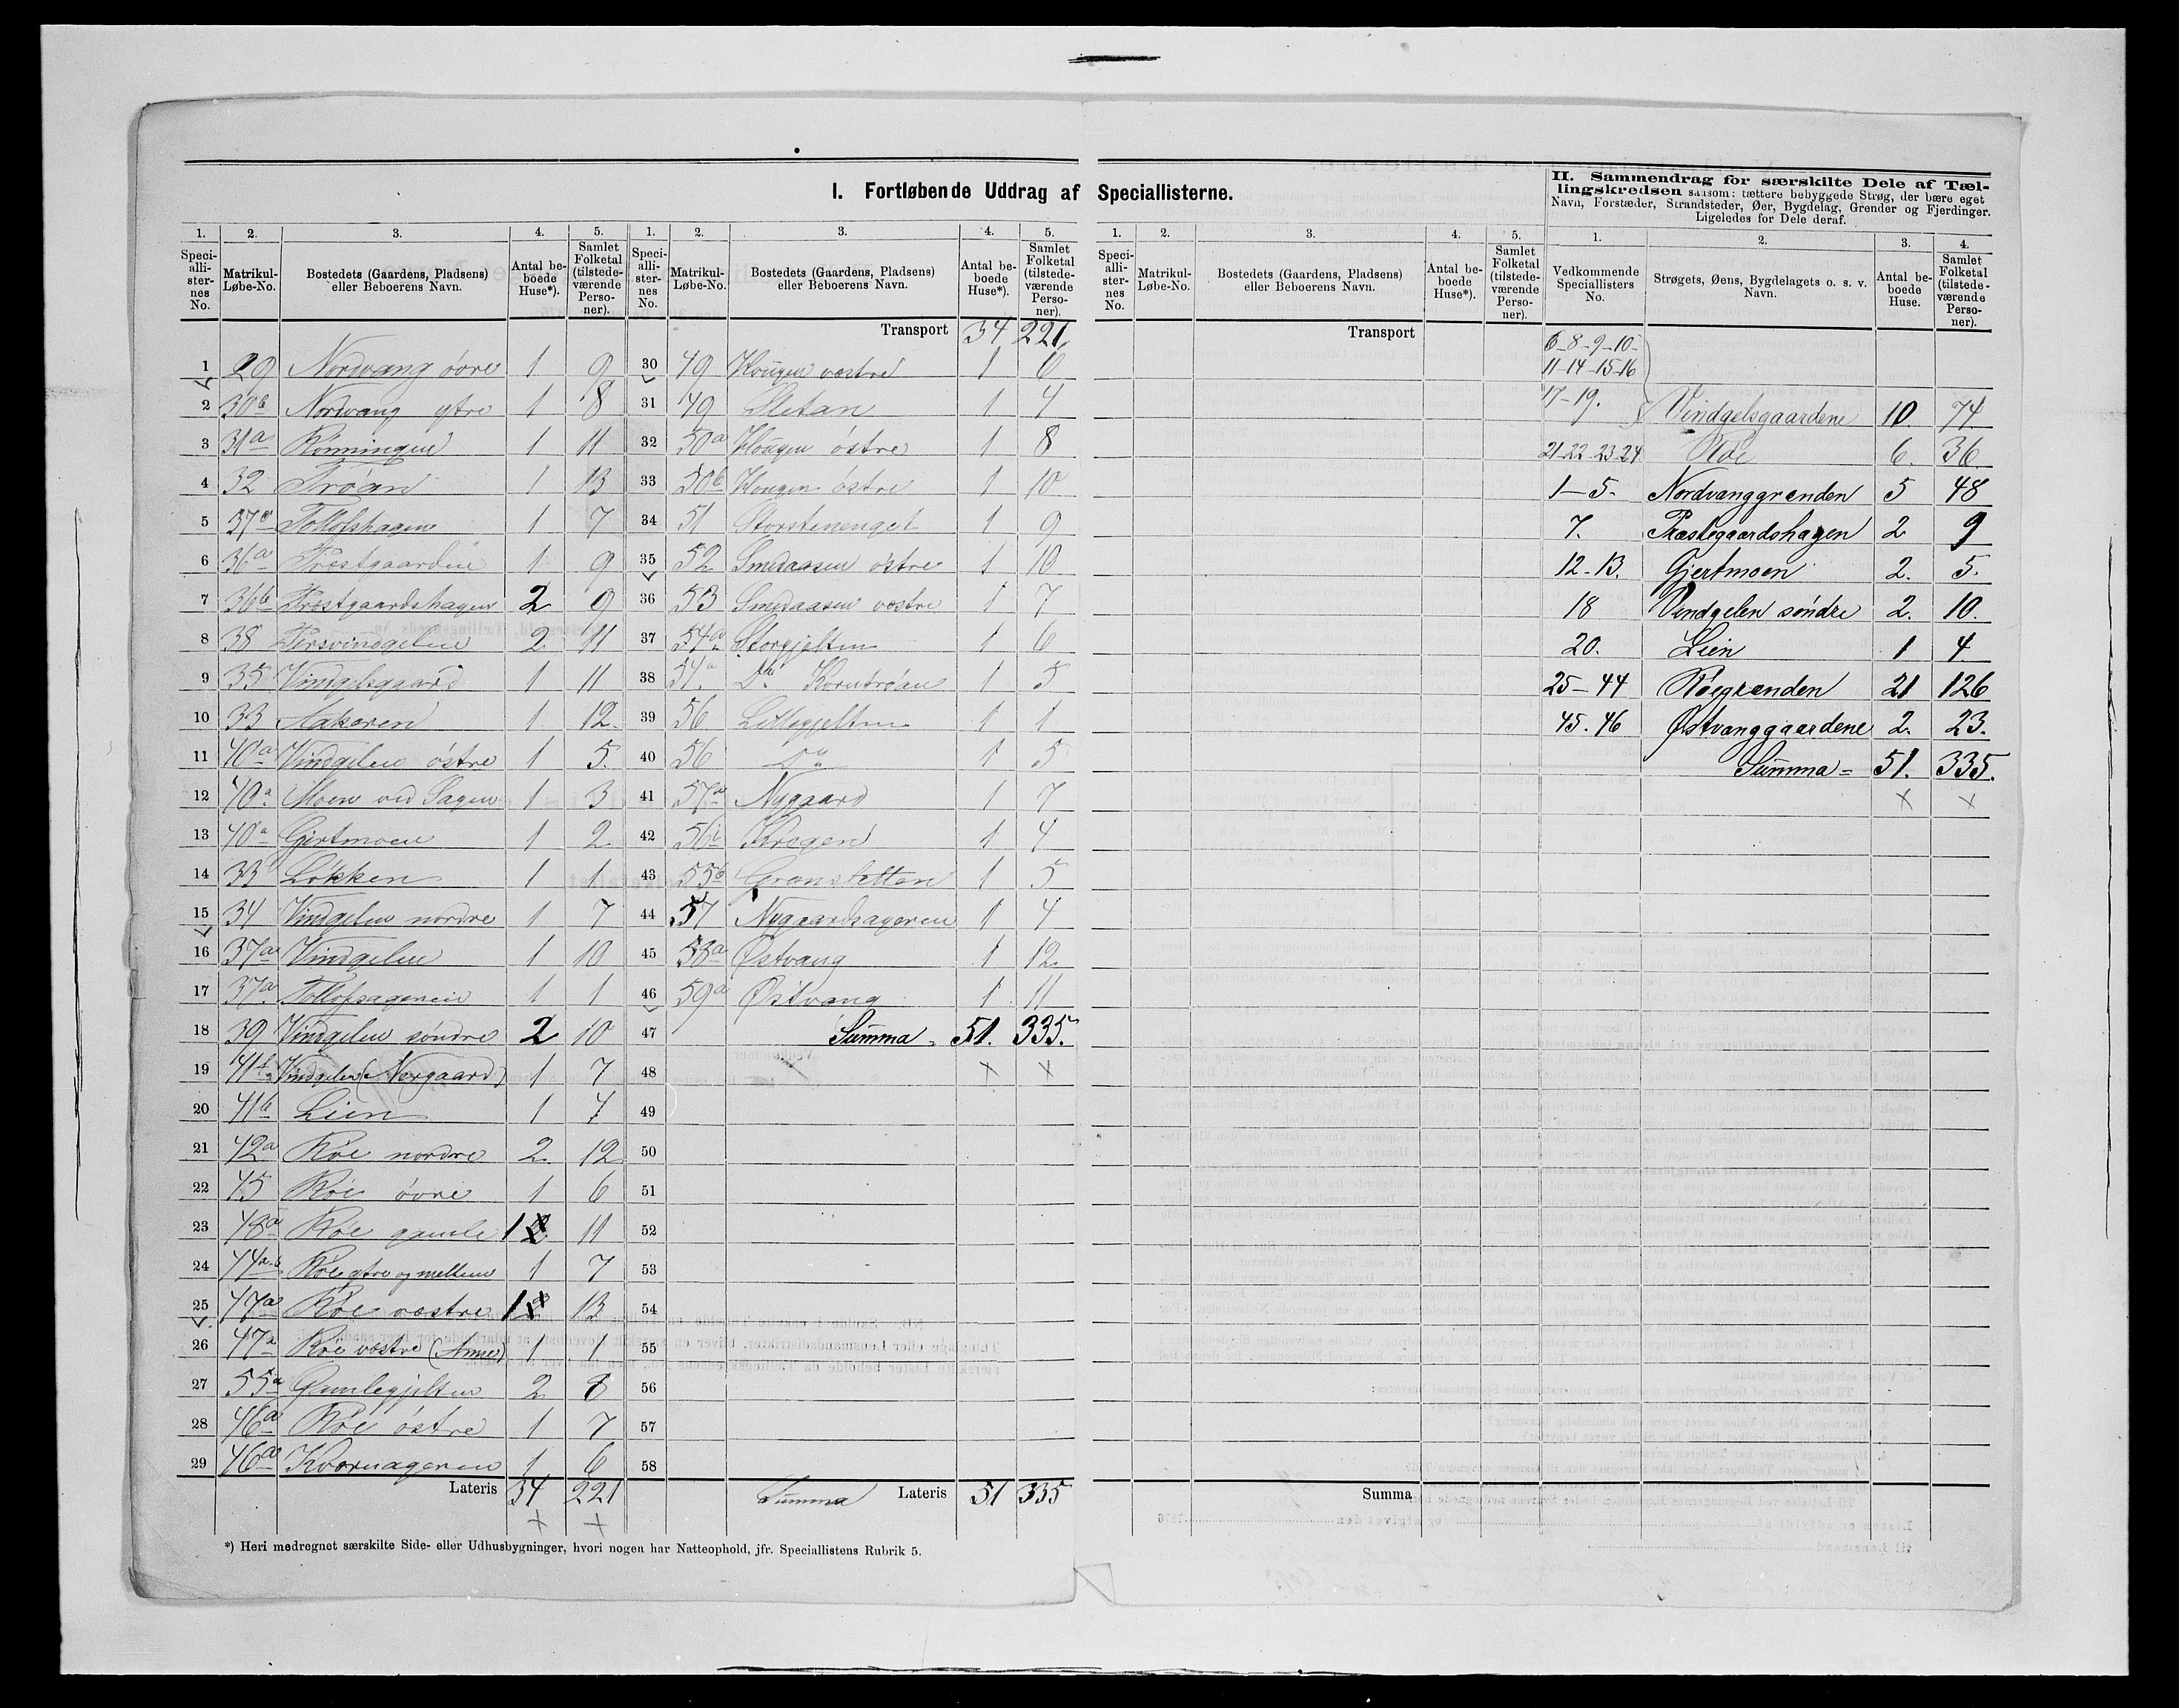 I. Fortløbende Uddrag af Speciallisterne.
1. 2. 3. 4. 5.
Speciallisternes No. Matrikul-Løbe-No. Bostedets (Gaardens, Pladsens) eller Beboerens Navn. Antal beboede Huse*). Samlet Folketal (tilstedeværende Personer).
1 29 Nordvang övre 1 9
2 30b Nordvang ytre 1 8
3 31a Rönningen 1 11
4 32 Tröan 1 13
5 37 Tollofshagen 1 7
6 36a Præstgaarden 1 9
7 36b Præstgaardshagen 2 9
8 38 Persvindgelen 2 11
9 35 Vindgelsgaard 1 11
10 33 Aakeren 1 12.
11 40a Vindgelen östre 1 5.
12 40a Moen ved Sagen 1 3
13 40a Gjertmoen 1 2.
14 33 Løkken 1 1
15 34 Vindgelen nordre 1 7
16 37a Vindgelen 1 10
17 37a. Tollofsageren 1 1
18 39 Vindgelen söndre 2 10
19 41 Vindgelen (Nergaard) 1 7
20 41b Lien 1 4
21 42a Röe nordre 2. 12
22 45 Röe övre 1 6
23 48a Röe gamle 1 11
24 44a.b Röe ytre og mellem 1 7
25 47a Röe vestre 1 13
26 47a Röe vestre (Anne) 1 1
27 55a Gamlegjelten 2 8
28 46a Röe östre 1 7
29 46a Kværnageren 1 6
Lateris 34 221
+ +
1. 2. 3. 4. 5.
Speciallisternes No. Matrikul-Løbe-No. Bostedets (Gaardens, Pladsens) eller Beboerens Navn. Antal beboede Huse*). Samlet Folketal (tilstedeværende Personer).
Transport 34 221
30 49 Hougen vestre 1 6
31 49 Sletan 1 4
32 50a Hougen östre 1 8
33 50b Hougen östre 1 10
34 51 Storstenenget 1 9
35 52 Smedaasen östre 1 10
36 53 Smedaasen vestre 1 7
37 54a Storgjelten 1 6
38 54a. Do Korntröan 1 5
39 56 Lillegjelten 1 1
40 56 Do 1 5
41 57a Nygaard 1 7
42 56b Krogen 1 4
43 55b Grønsletten 1 5
44 57 Nygaardsageren 1 4
45 58a Østvang 1 12.
46 59a Østvang 1 11
47 Summa 51. 335.
48 × ×
49
50
51
52
53
54
55
56
57
58
Summa Lateris 51 335
*) Heri medregnet særskilte Side- eller Udhusbygninger, hvori nogen har Natteophold, jfr. Speciallistens Rubrik 5.
1. 2. 3. 4. 5.
Speciallisternes No. Matrikul-Løbe-No. Bostedets (Gaardens, Pladsens) eller Beboerens Navn. Antal beboede Huse*). Samlet Folketal (tilstedeværende Personer).
Transport
Summa
II. Sammendrag for særskilte Dele af Tællingskredsen saasom: tættere bebyggede Strøg, der bære eget Navn, Forstæder, Strandsteder, Øer, Bygdelag, Grender og Fjerdinger. Ligeledes for Dele deraf.
1. 2. 3. 4.
Vedkommende Speciallisters No. Strøgets, Øens, Bygdelagets o. s. v. Navn. Antal beboede Huse. Samlet Folketal (tilstedeværende Personer).
6-8-9-10-
11-14-15-16
17-19. Vindgelsgaardene 10 74
21-22-23-24 Röe 6. 36
1-5. Nordvanggrenden 5 48
7. Præstegaardshagen 2 9
12-13. Gjertmoen 2. 5.
18 Vindgelen söndre 2. 10.
20. Lien 1 4.
25-44 Röegrenden 21 126
45. 46 Østvanggaardene 2. 23.
Summa = 51. 335.
× ×